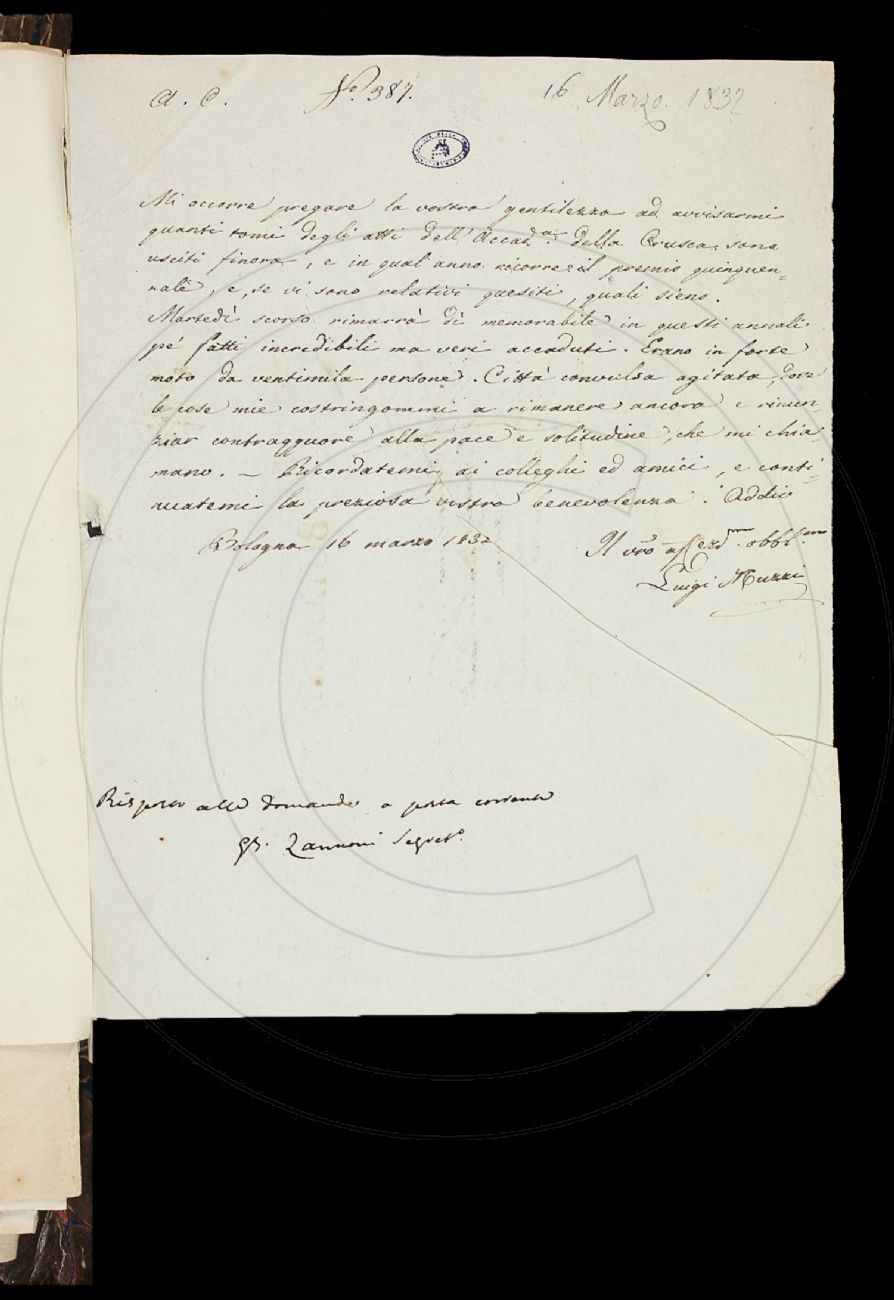 A. C. N.º 387. 16 Marzo. 1832
Mi occorre pregare la vostra gentilezza ad avvisarmi
quanti tomi degli atti dell'Accad.ª della Crusca sono
usciti finora, e in qual anno ricorre il premio quinquen=
nale, e, se vi sono relativi quesiti, quali sieno.
Martedì scorso rimarrà dì memorabile in questi annali
pe' fatti incredibili ma veri accaduti. Erano in forte
moto da ventimila persone. Città convulsa agitata, dove
le cose mie costringommi a rimanere ancora e rinun=
ziar contragguore alla pace e solitudine, che mi chia=
mano. — Ricordatemi ai colleghi ed amici, e conti=
nuatemi la preziosa vostra benevolenza. Addio
Bologna 16 marzo 1832 Il vrõ obbl.mo
Luigi Muzzi
Risposto alle domande a posta corrente
GB. Zannoni Segret.º